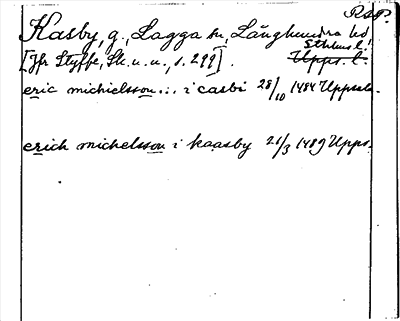 RAP.
Kasby, g., Lagga sn, Långhundra hd
Sthlms l.
[Jfr Styffe, Sk. u. u., s. 299]. Upps. l.
eric michielsson ... i casbi 28/10 1484 Uppsala.
erich michelsson i kaasby 21/3 1489 Upps.